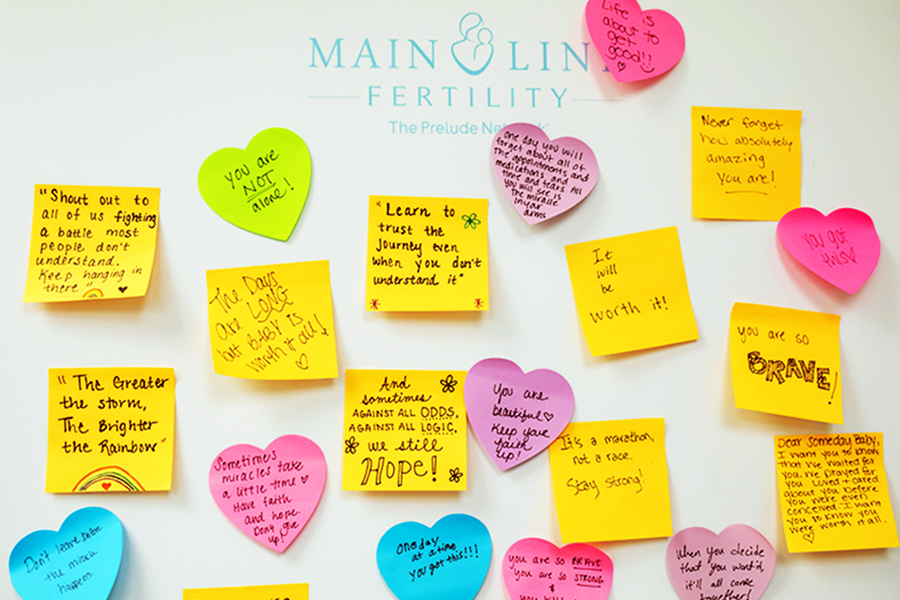 MAIN LIN
FERTILITY
The Prelude Ne
Life is
about to
get
good!!
You are
NOT
alone!
One day you will
forget about all of
the appointments and
medications and
time and tears. All
you will see is
the miracle
in your
arms
Never forget
how absolutely
amazing
you are!
"Shout out to
all of us fighting
a battle most
people don't
understand.
Keep hanging in
there"
"Learn to
trust the
Journey even
when you don't
understand it"
You got
this!
The Days
are LONG
but BABY is
worth it all!
It
will
be
worth it!
you are so
BRAVE!
"The Greater
the storm,
The Brighter
the Rainbow"
And
sometimes
AGAINST ALL ODDS,
AGAINST ALL LOGIC,
we still
Hope!
You are
beautiful
Keep your
faith
up!
Sometimes
miracles take
a little time
Have faith
and hope
Don't give
up!
It's a marathon,
not a race.
Stay strong!
Dear Someday Baby,
I want you to know
that I've waited for
you, I've prayed for
you. Loved + cared
about you before
you were even
conceived. I want
you to know you
were worth it all.
Don't leave before
the miracle
happens
One day
at a time
you got this!!!
you are so BRAVE
you are so STRONG
&
When you decide
that you want it,
it'll all come
together!